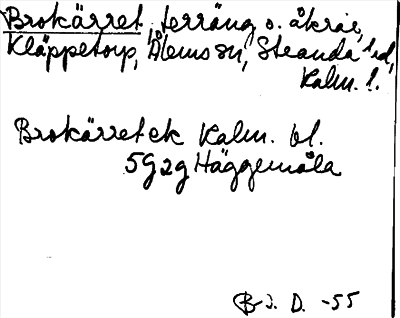 Brokärret, terräng o. åkrar,
Kläppetorp, Ålems sn, Stranda hd,
Kalm. l.
Brokärret ek Kalm. bl.
5G2g Häggemåla
B-J. D. -55